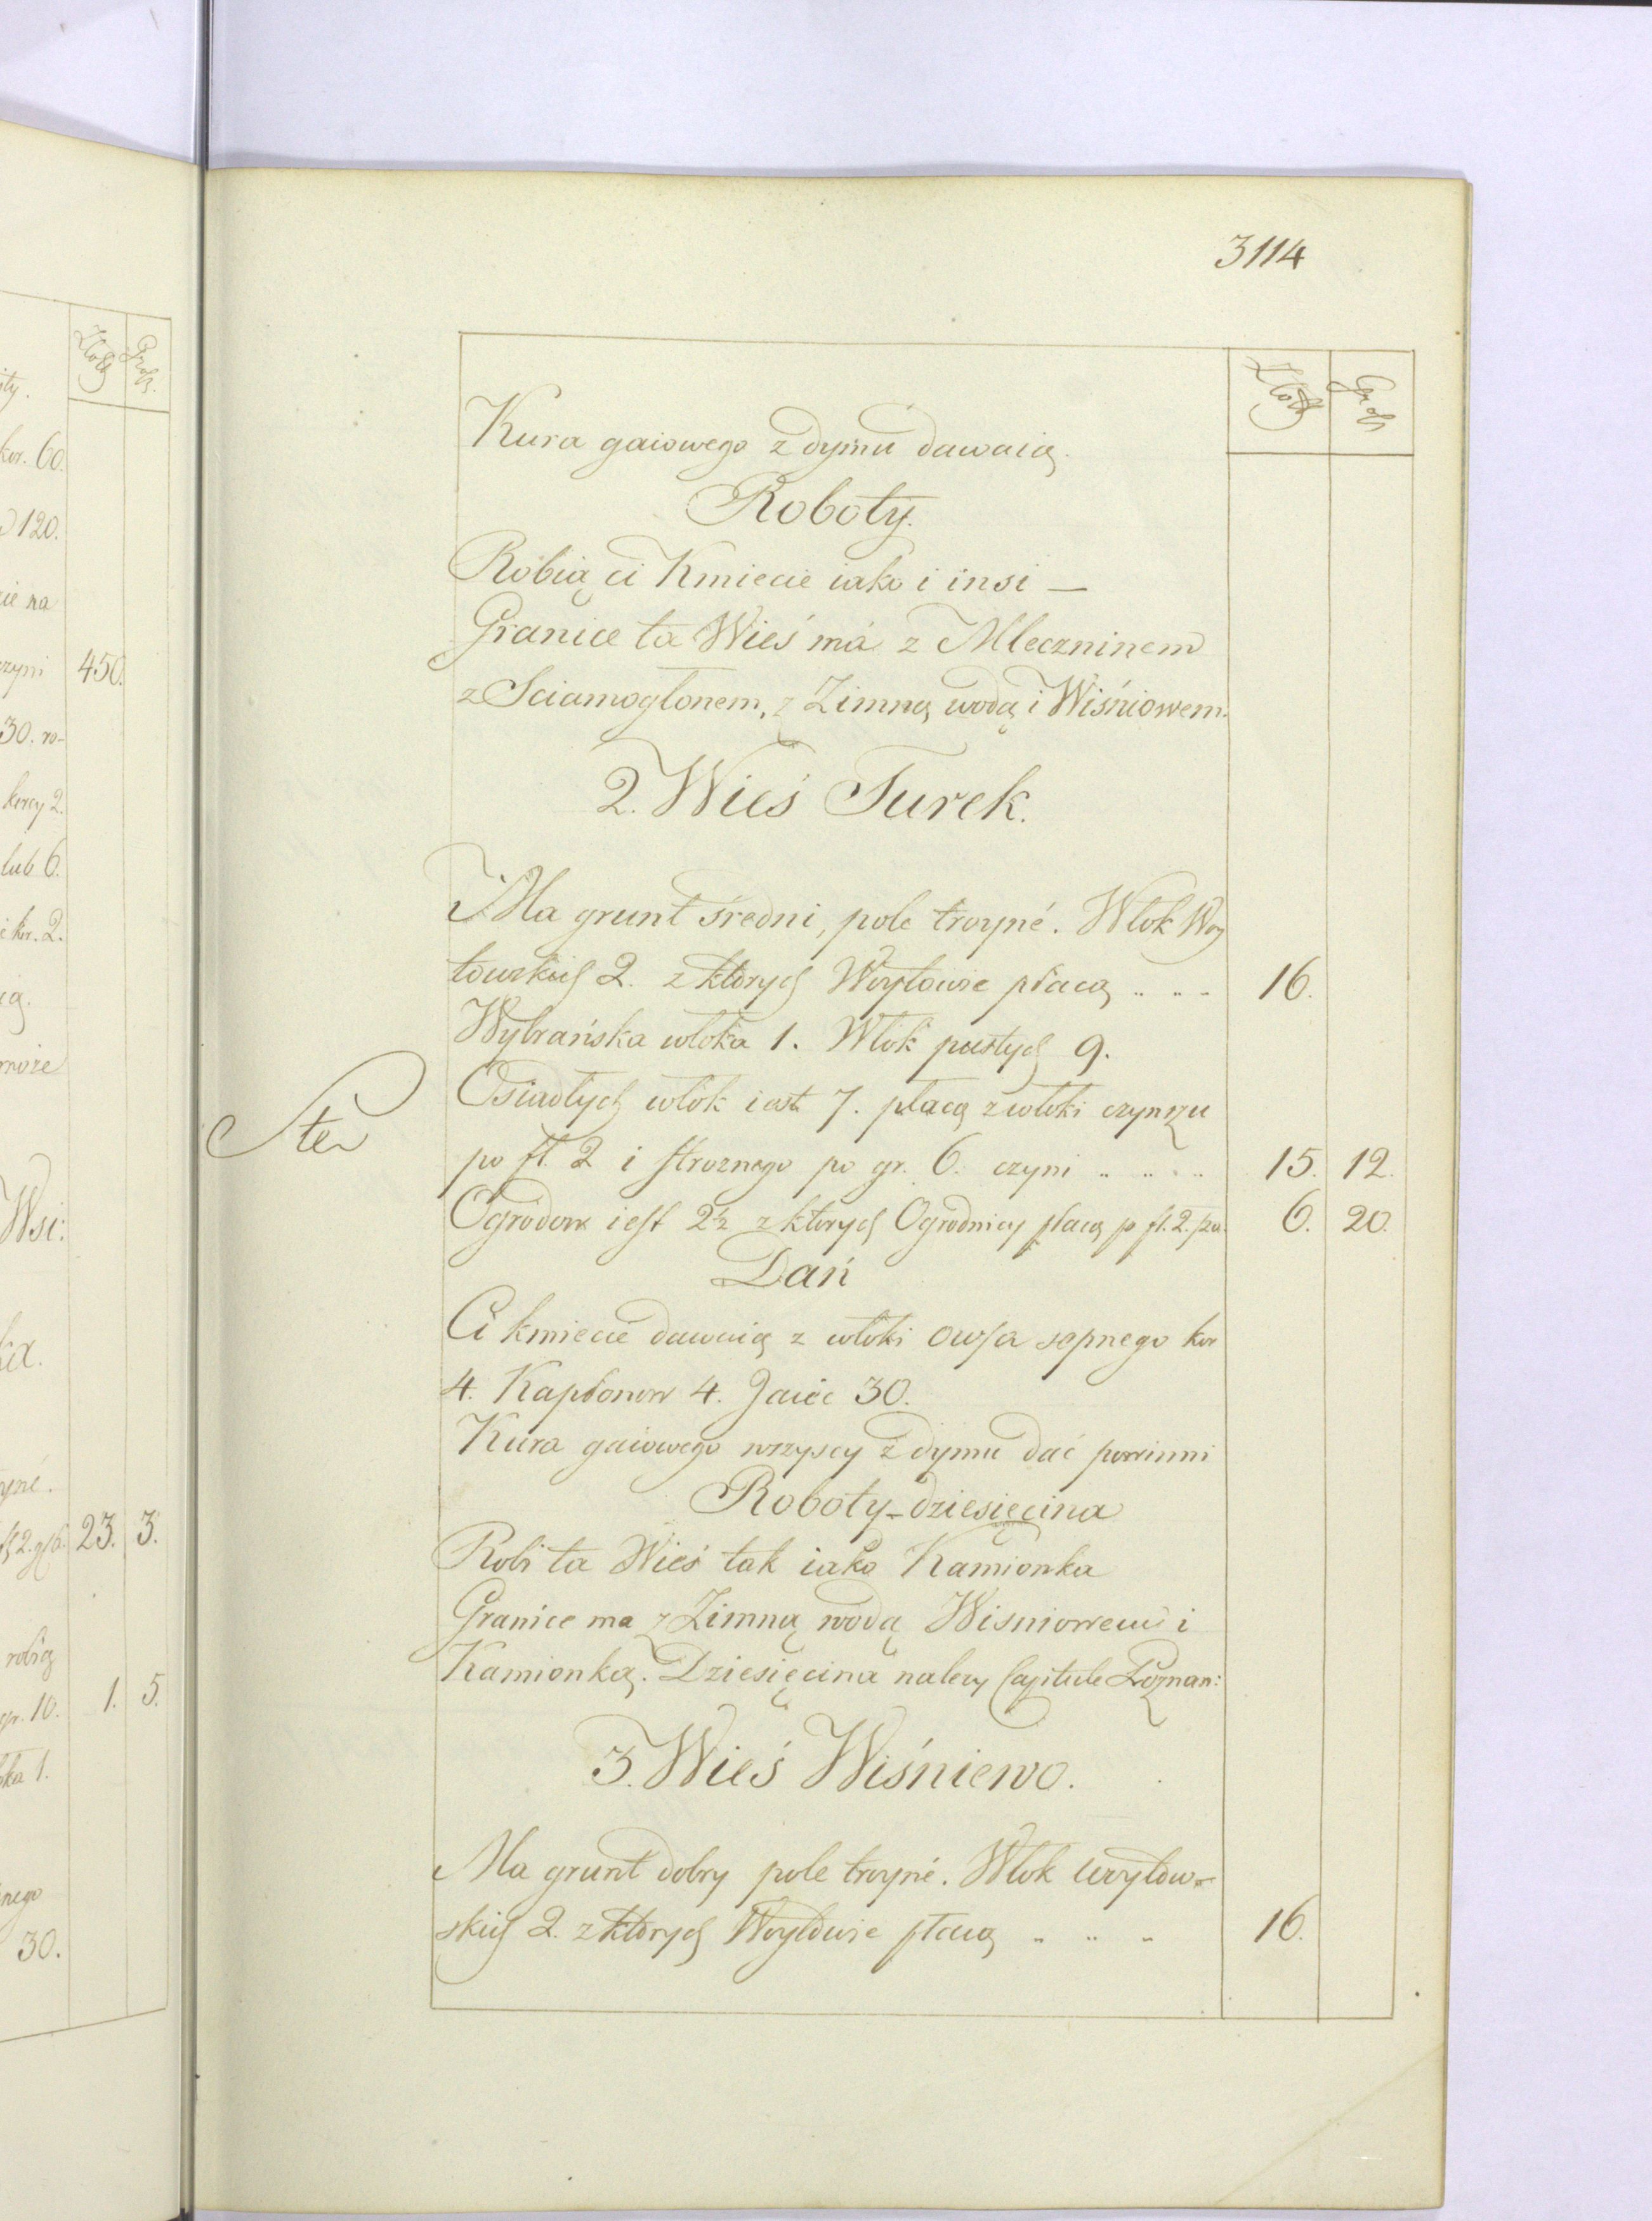 3114
Złoty Grosz
Kura gaiowego z dymu dawaią.
Roboty.
Robią ci Kmiecie iako i insi —
Granice ta Wieś má z Mleczninem
z Sciamogłonem, z Zimną wodą i Wiśniowem.
2. Wieś Turek.
Ma grunt średni, pole troyné. Włok Woy
towskich 2. z których Woytowie płacą .. .. .. 16.
Wybrańska włoka 1. Włok pustych 9.
Osiadłych włok iest 7. płacą z włoki czynszu
po fl. 2 i stroznego po gr. 6. czyni .. .. .. 15. 12.
Ogrodow iest 2½ z których Ogrodnicy płacą p fl. 2. 6. 20.
Dań
Ci kmiecie dawaią z włoki owsa sepnego kor
4. Kapłonow 4. Jaiec 30.
Kura gaiowego wszyscy z dymu dać powinni
Roboty - dziesięcina
Robi ta Wieś tak iako Kamionka
Granice ma z Zimną wodą Wisniowem i
Kamionką. Dziesięcina nalezy Capitule Poznan:
3. Wieś Wiśniewo.
Ma grunt dobry pole troyné. Włok woytow-
skich 2. z których Woytowie płacą .. .. .. 16.
Złoty Grosz.
kor. 60.
120.
cie na
czyni 450.
30. ro-
korcy 2.
lub 6.
kor. 2.
może
Wsi:
23. 3.
robią
gr. 10. 1. 5.
1.
30.